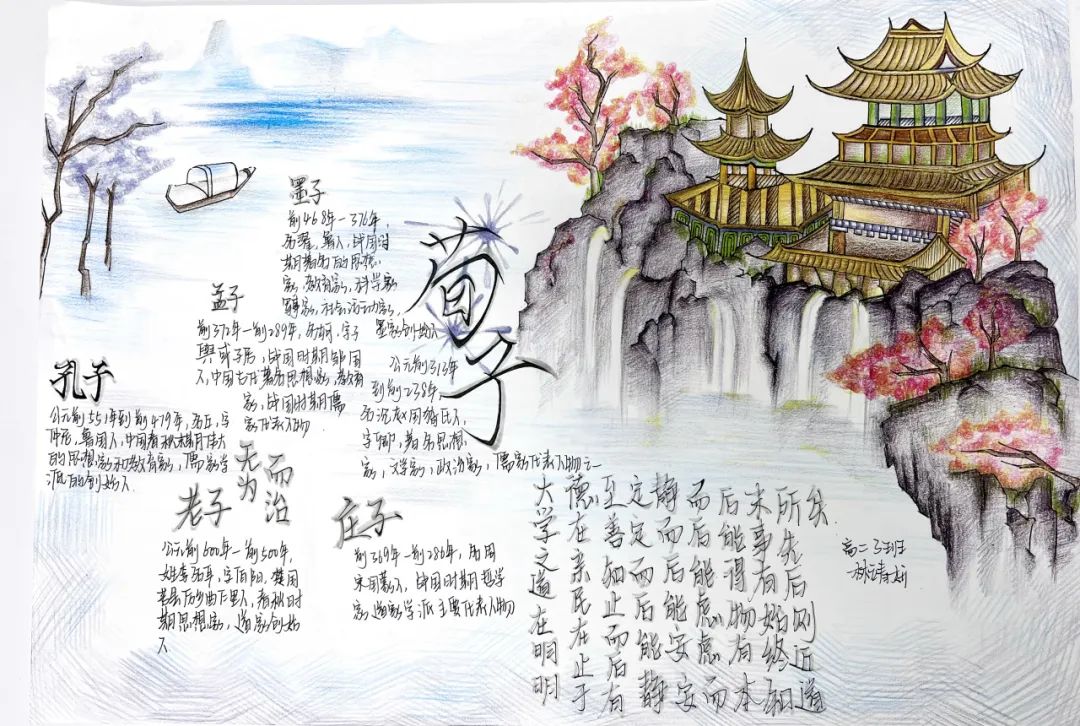 墨子
前468年—376年,
名翟,鲁人,战国时
期著名的思想
家,教育家,科学家
军事家,社会活动家,
墨家创始人
孟子
前372年—前289年,名轲,字子
舆或子居,战国时期邹国
人,中国古代著名思想家,教育
家,战国时期儒
家代表人物
荀子
公元前313年
到前238年,
名况,战国人,
字卿,著名思想
家,文学家,政治家,儒家代表人物之一
孔子
公元前551年到前479年,名丘,字
仲尼,鲁国人,中国春秋末期伟大
的思想家和教育家,儒家学
派的创始人.
无为
而治
老子
公元前600年—前500年,
姓李名耳,字伯阳,楚国
苦县厉乡曲仁里人,春秋时
期思想家,道家创始
人
庄子
前369年—286年,名周
宋国蒙人,战国时期哲学
家,道家学派主要代表人物
大学之道在明明
德在亲民在止于
至善知止而后有
定定而后能静
静而后能安安
而后能虑虑而
后能得物有本
末事有始终知
所先后则近道
矣
高二3班